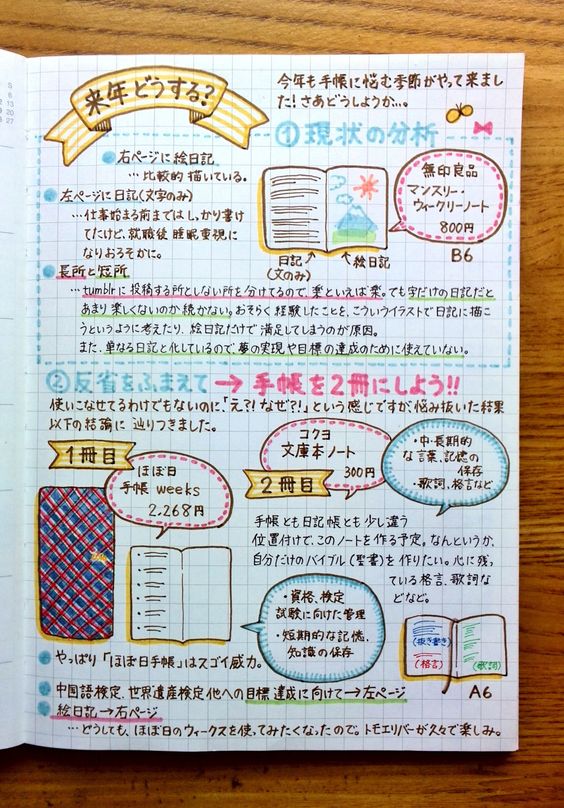 来年どうする?
今年も手帳に悩む季節がやって来まし
た!さあどうしようか…。
①現状の分析
右ページに絵日記
…比較的描いている。
左ページに日記(文字のみ)
…仕事始まる前まではしっかり書け
てたけど、就職後睡眠重視に
なりおろそかに。
日記
(文のみ)
絵日記
無印良品
マンスリー・
ウィークリーノート
800円
B6
長所と短所
…tumblrに投稿する所としない所を分けてるので、楽といえば楽。でも字だけの日記だと
あまり楽しくないのか続かない。おそらく経験したことを、こういうイラストで日記に描こ
うというように考えたり、絵日記だけで満足してしまうのが原因。
また、単なる日記と化しているので、夢の実現や目標の達成のために使えていない。
②反省をふまえて→手帳を2冊にしよう!!
使いこなせてるわけでもないのに「え?!なぜ?!」という感じですが、悩み抜いた結果
以下の結論に辿りつきました。
1冊目
ほぼ日
手帳 weeks
2,268円
2冊目
コクヨ
文庫本ノート
300円
・中・長期的
な言葉、記憶の
保存
・歌詞、格言など
手帳とも日記帳とも少し違う
位置付けで、このノートを作る予定。なんというか、
自分だけのバイブル(聖書)を作りたい。心に残っ
ている格言、歌詞な
どなど。
・資格、検定
試験に向けた管理
・短期的な記憶、
知識の保存
(抜き書き)
(格言)
(歌詞)
A6
やっぱり「ほぼ日手帳」はスゴイ威力。
中国語検定、世界遺産検定他への目標達成に向けて→左ページ
絵日記→右ページ
…どうしても、ほぼ日のウィークスを使ってみたくなったので。トモエリバーが久々で楽しみ。
S
6
13
20
27